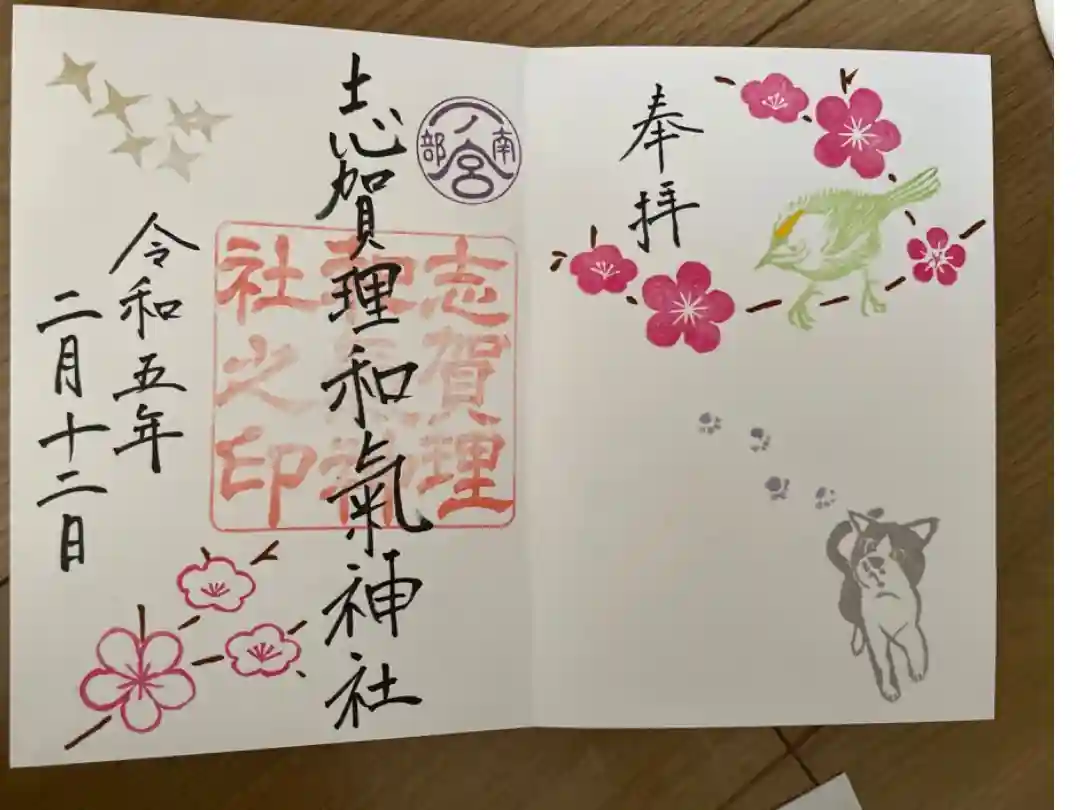 奉拝
南部
一ノ宮
志賀理和氣神社
志賀理
社之印
令和五年
二月十二日